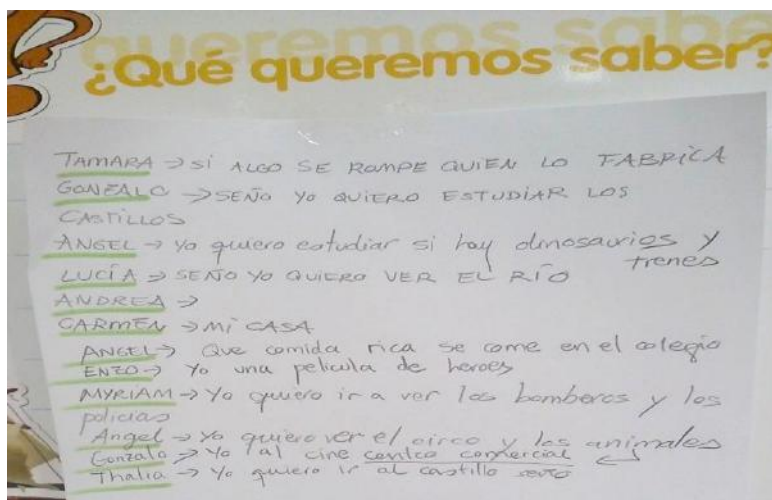 queremos sabe
¿Qué queremos saber?
TAMARA → SI ALGO SE ROMPE QUIEN LO FABRICA
GONZALO → SEÑO YO QUIERO ESTUDIAR LOS
CASTILLOS
ÁNGEL → Yo quiero estudiar si hay dinosaurios y
trenes
LUCÍA → SEÑO YO QUIERO VER EL RÍO
ANDREA →
CARMEN → MI CASA
ANGEL → Que comida rica se come en el colegio
ENZO → Yo una pelicula de heroes
MYRIAM → Yo quiero ir a ver los bomberos y los
policias
Angel → Yo quiero ver el circo y los animales
Gonzalo → Yo al cine centro comercial
Thalia → Yo quiero ir al castillo